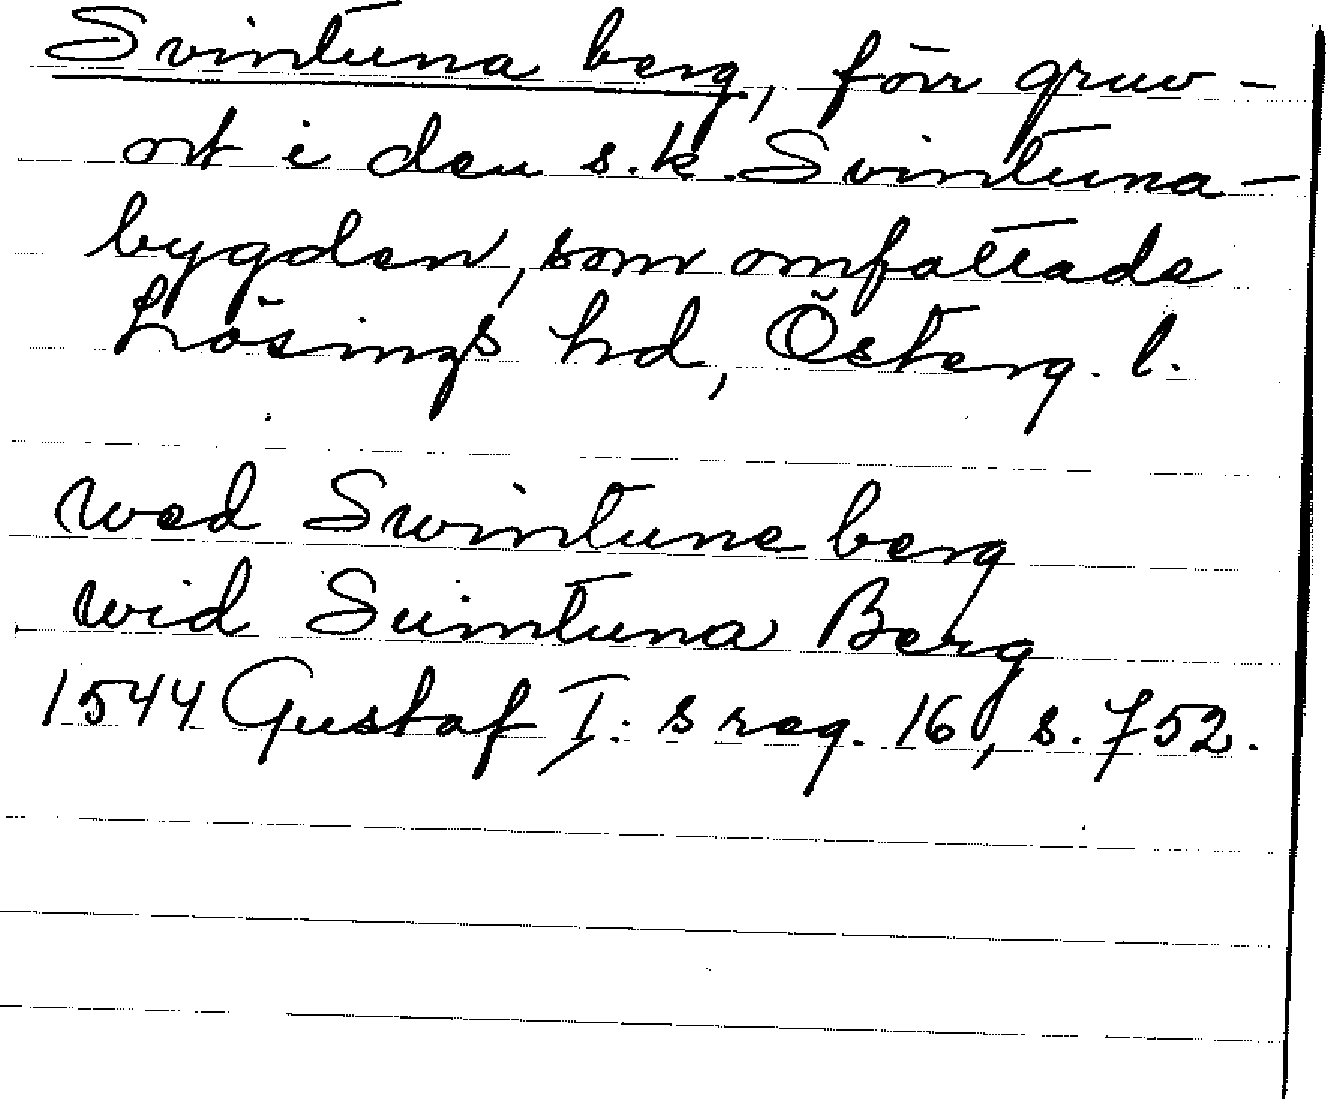 Svintuna berg, förr gruv-
ort i den s.k. Svintuna-
bygden, som omfattade
Lösings hd, Österg. l.
wed Swintune berg
wid Suintuna Berg
1544 Gustaf I:s reg. 16, s. 752.